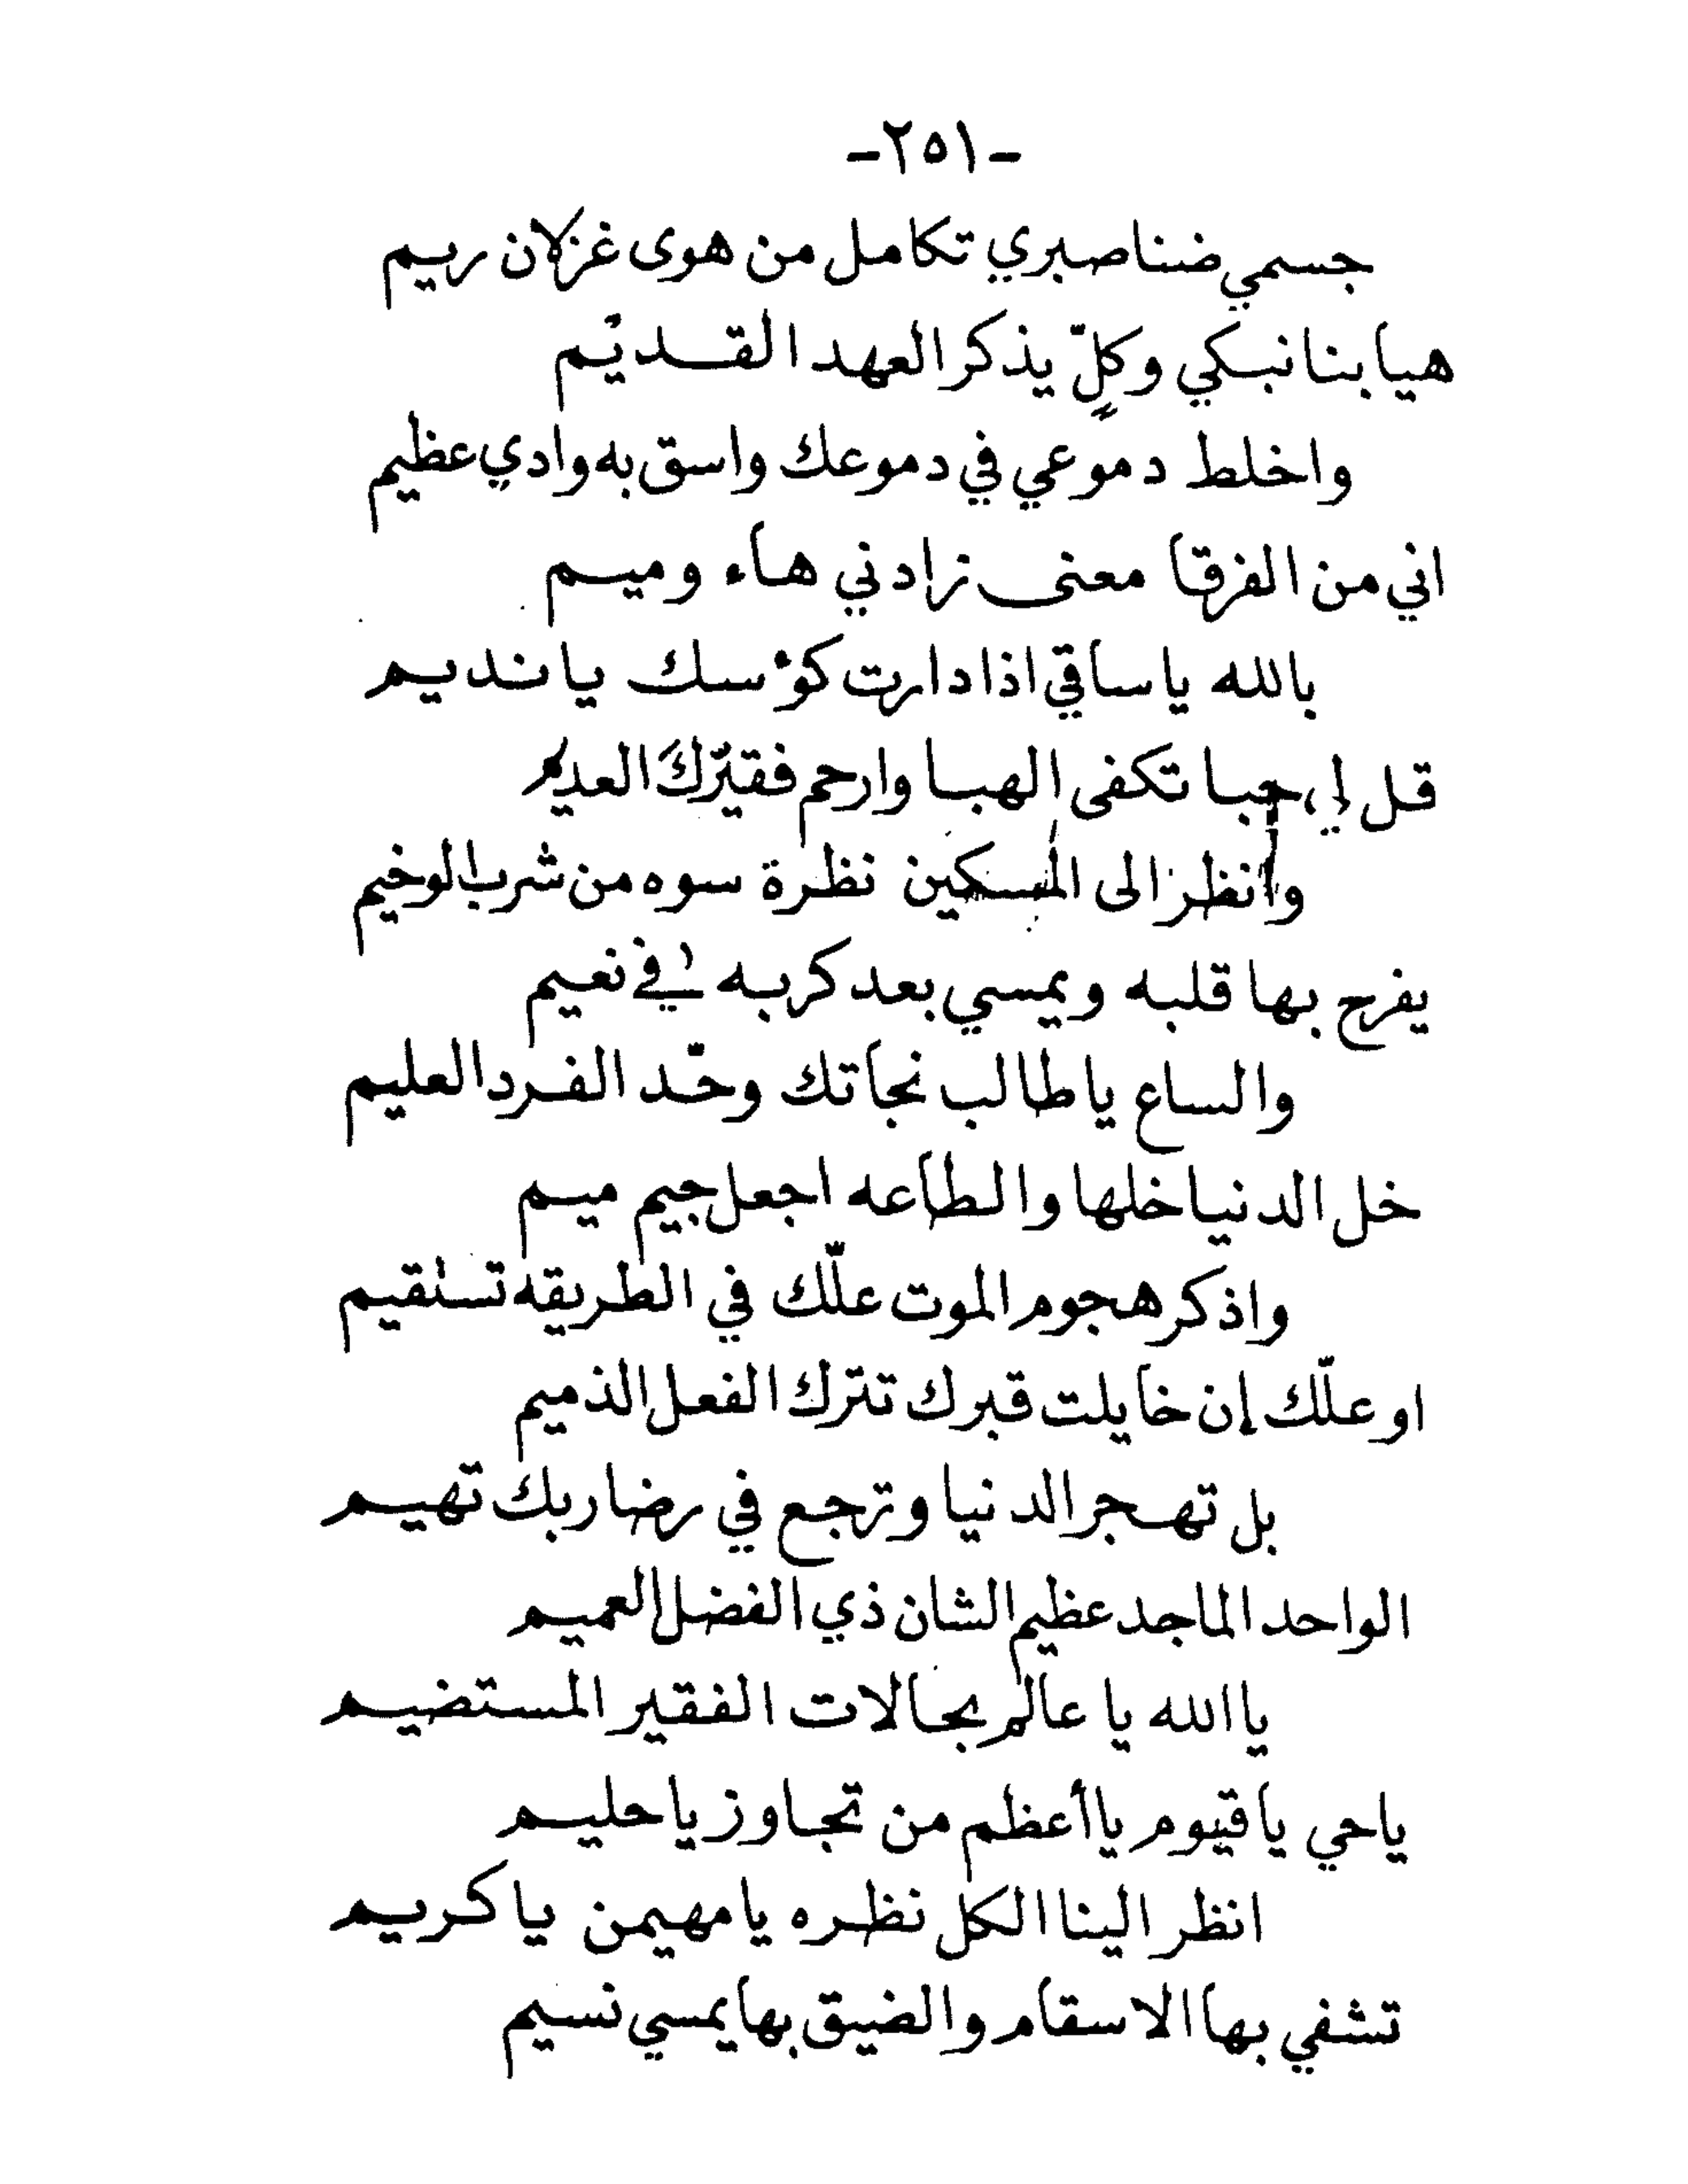 -٢٥١-
جسمي ضنا صبري تكامل من هوى غزلان ريم
هيا بنا نبكي وكلٍّ يذكر العهد القديْم
واخلط دموعي في دموعك واسق به وادي عظيم
اني من الفرقا معنى زادني هاء وميم
بالله يا ساقي اذا دارت كؤسك يا نديم
قل لي حبا تكفى الهبا وارحم فقيْرك العديم
وانظر الى المسكين نظرة سوه من شرب الوخيم
يفرج بها قلبه ويمسي بعد كربه في نعيم
والساع يا طالب نجاتك وحّد الفرد العليم
خل الدنيا خلها والطاعه اجعل جيم ميم
واذكر هجوم الموت علّك في الطريقه تستقيم
او علّك إن خايلت قبرك تترك الفعل الذميم
بل تهجر الدنيا وترجع في رضا ربك تهيم
الواحد الماجد عظيم الشان ذي الفضل العميم
يا الله يا عالم بحالات الفقير المستضيم
ياحي يا قيوم يا أعظم من تجاوز يا حليم
انظر الينا الكل نظره يا مهيمن يا كريم
تشفي بها الاسقام والضيق بها يمسي نسيم